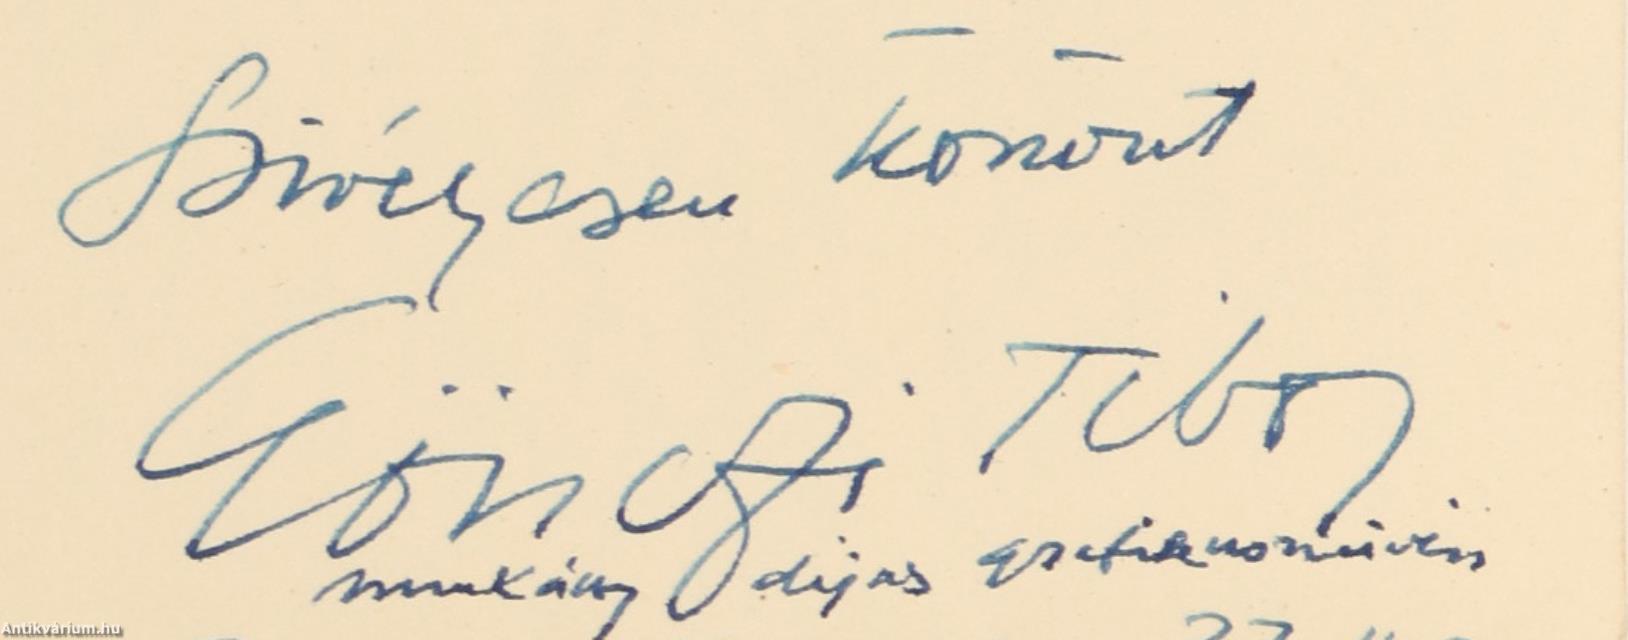 Szivélyesen köszönt
Gönczi Tibor
munkácsy dijas grafikusművész
Antikvárium.hu